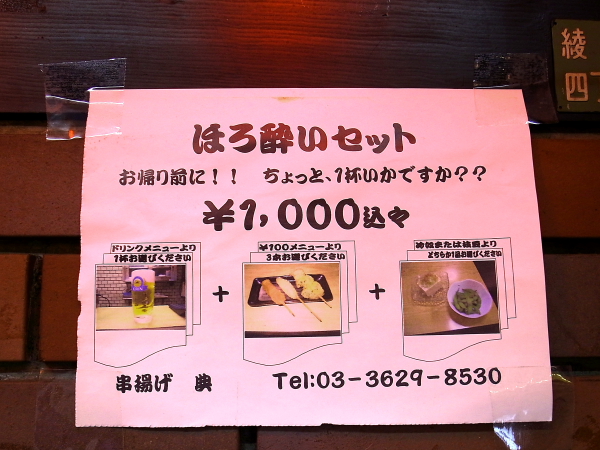 綾
四丁
ほろ酔いセット
お帰り前に！！　ちょっと、1杯いかですか？？
¥1,000込々
ドリンクメニューより
1杯お選びください
¥100メニューより
3本お選びください
+
+
または枝豆より
どちらか1品お選びください
串揚げ　典
Tel:03-3629-8530